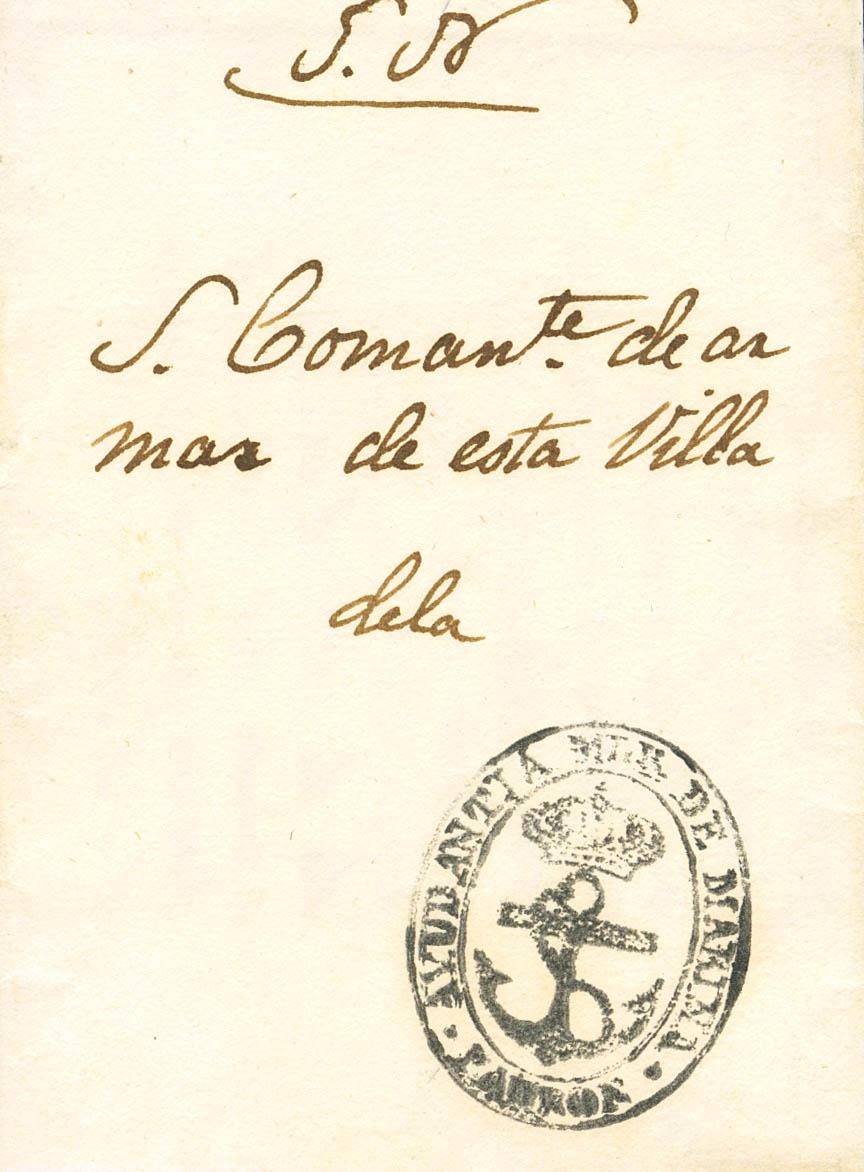 S. N
S. Coman.te de ar
mas de esta Villa
dela
AYUDANTIA MIL.R DE MARINA
· PADRON ·